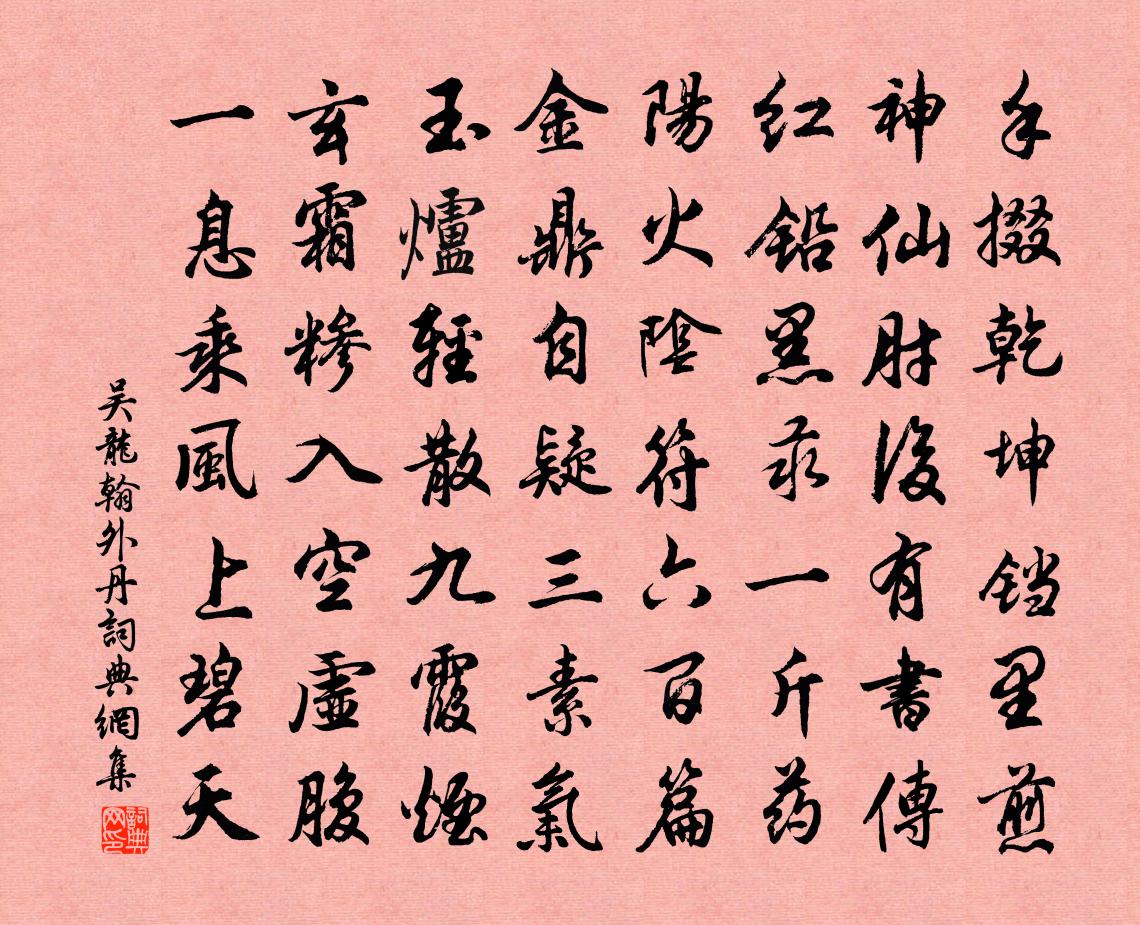 手掇乾坤铛里煎
神仙肘後有書傳
红铅黑汞一斤药
陽火陰符六百篇
金鼎自疑三素氣
玉爐輕散九霞煙
玄霜糝入空虛腹
一息乘風上碧天
吴龍翰外丹詞典網集
詞典网印